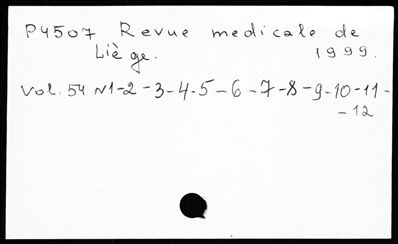 P4507 Revue medicale de
Liège. 1999.
Vol. 54 N1-2-3-4-5-6-7-8-9-10-11-
-12